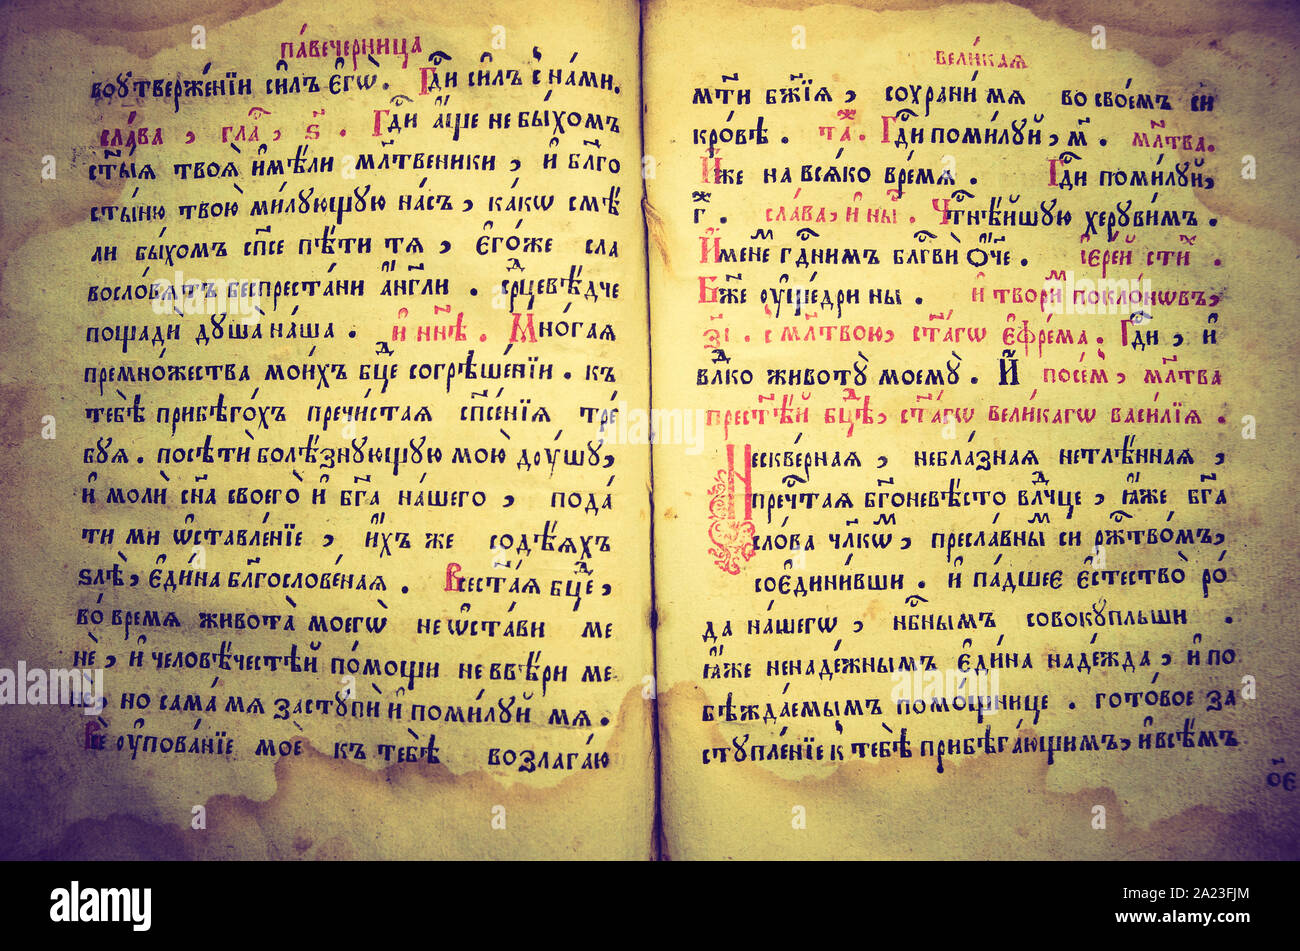 па́вечерница
воутверже́нїи си́лъ є҆гѡ̀. Гдⷭ҇и си́лъ с̾ на́ми.
сла́ва, гла́, ѕ҃. Гдⷭ҇и а҆́ще не бы́хомъ
ст҃ы́ѧ твоѧ̀ и҆мѣ́ли мл҃твеники, и҆ бл҃го
сты́ню твою̀ ми́лꙋющꙋю на́съ, ка́кѡ смѣ́
ли бы́хомъ сп҃се пѣ́ти тѧ̀, є҆го́же сла
восло́вѧтъ беспреста́ни а҆́нг҃ли. срⷣцевѣ́дче
пощадѝ дꙋ́ша на́ша. и҆ нн҃ѣ. Мно́гаѧ
премно́жества мои́хъ бцⷣе согрѣше́нїи. къ
тебѣ̀ прибѣго́хъ пречи́стаѧ сп҃се́нїѧ тре́
бꙋѧ. посѣтѝ болѣ́знꙋющꙋю мою̀ дꙋ́шꙋ,
и҆ молѝ сн҃а своего̀ и҆ бг҃а на́шего, пода́
ти ми ѡ҆ставле́нїе, и҆́хъ же содѣ́ѧхъ
ѕлѣ̀, є҆ди́на бл҃гослове́наѧ. Всест҃а́ѧ бцⷣе,
во́ времѧ живота̀ моегѡ̀ не ѡ҆ста́ви ме
нѐ, и҆ человѣ́честѣй по́мощи не ввѣ́ри ме
нѐ, но сама́ мѧ застꙋпѝ и҆ поми́лꙋй мѧ.
Всѐ ᲂу҆пова́нїе моѐ къ тебѣ̀ возлага́ю
вели́каѧ
мт҃и бж҃їѧ, сохрани́ мѧ во свое́мъ си
кро́вѣ. таⷤ. Гдⷭ҇и поми́лꙋй, м҃. мл҃тва.
И҆́же на всѧ́ко вре́мѧ. Гдⷭ҇и поми́лꙋй,
гⷤ. сла́ва, и҆ ны́. Чтⷭ҇нѣ́йшꙋю херꙋви́мъ.
И҆́менеⷨ гдⷭ҇нимъ бл҃гвѝ ѻ҆́ч҃е. і҆ере́й стиⷯ.
Бж҃е ᲂу҆ще́дри ны. и҆ твори́ⷨ покло́нѡвъ,
зі҃. с̾ мл҃твою, ст҃а́гѡ є҆фре́ма. Гдⷭ҇и, и҆
влⷣко животꙋ̀ моемꙋ̀. И҆ посе́м, мл҃тва
прест҃ѣ́й бцⷣе, ст҃а́гѡ вели́кагѡ васи́лїѧ.
Нескве́рнаѧ, небла́знаѧ нетлѣ́ннаѧ,
пречⷭ҇таѧ бг҃оневѣ́сто влⷣчце, ꙗ҆́же бг҃а
сло́ва чл҃кѡⷨ, пресла́вныⷨ си ржⷭ҇тво́мъ,
соєдини́вши. и҆ па́дшеє є҆стество̀ ро́
да на́шегѡ, нбⷭ҇нымъ совокꙋпльши.
ꙗ҆́же ненаде́жнымъ є҆ди́на наде́жда, и҆ по
бѣжда́емымъ помо́щнице. гото́вое за
стꙋпле́нїе к̾ тебѣ̀ прибѣга́ющимъ, и҆ всѣ́мъ
alamy
Image ID: 2A23FJM
www.alamy.com